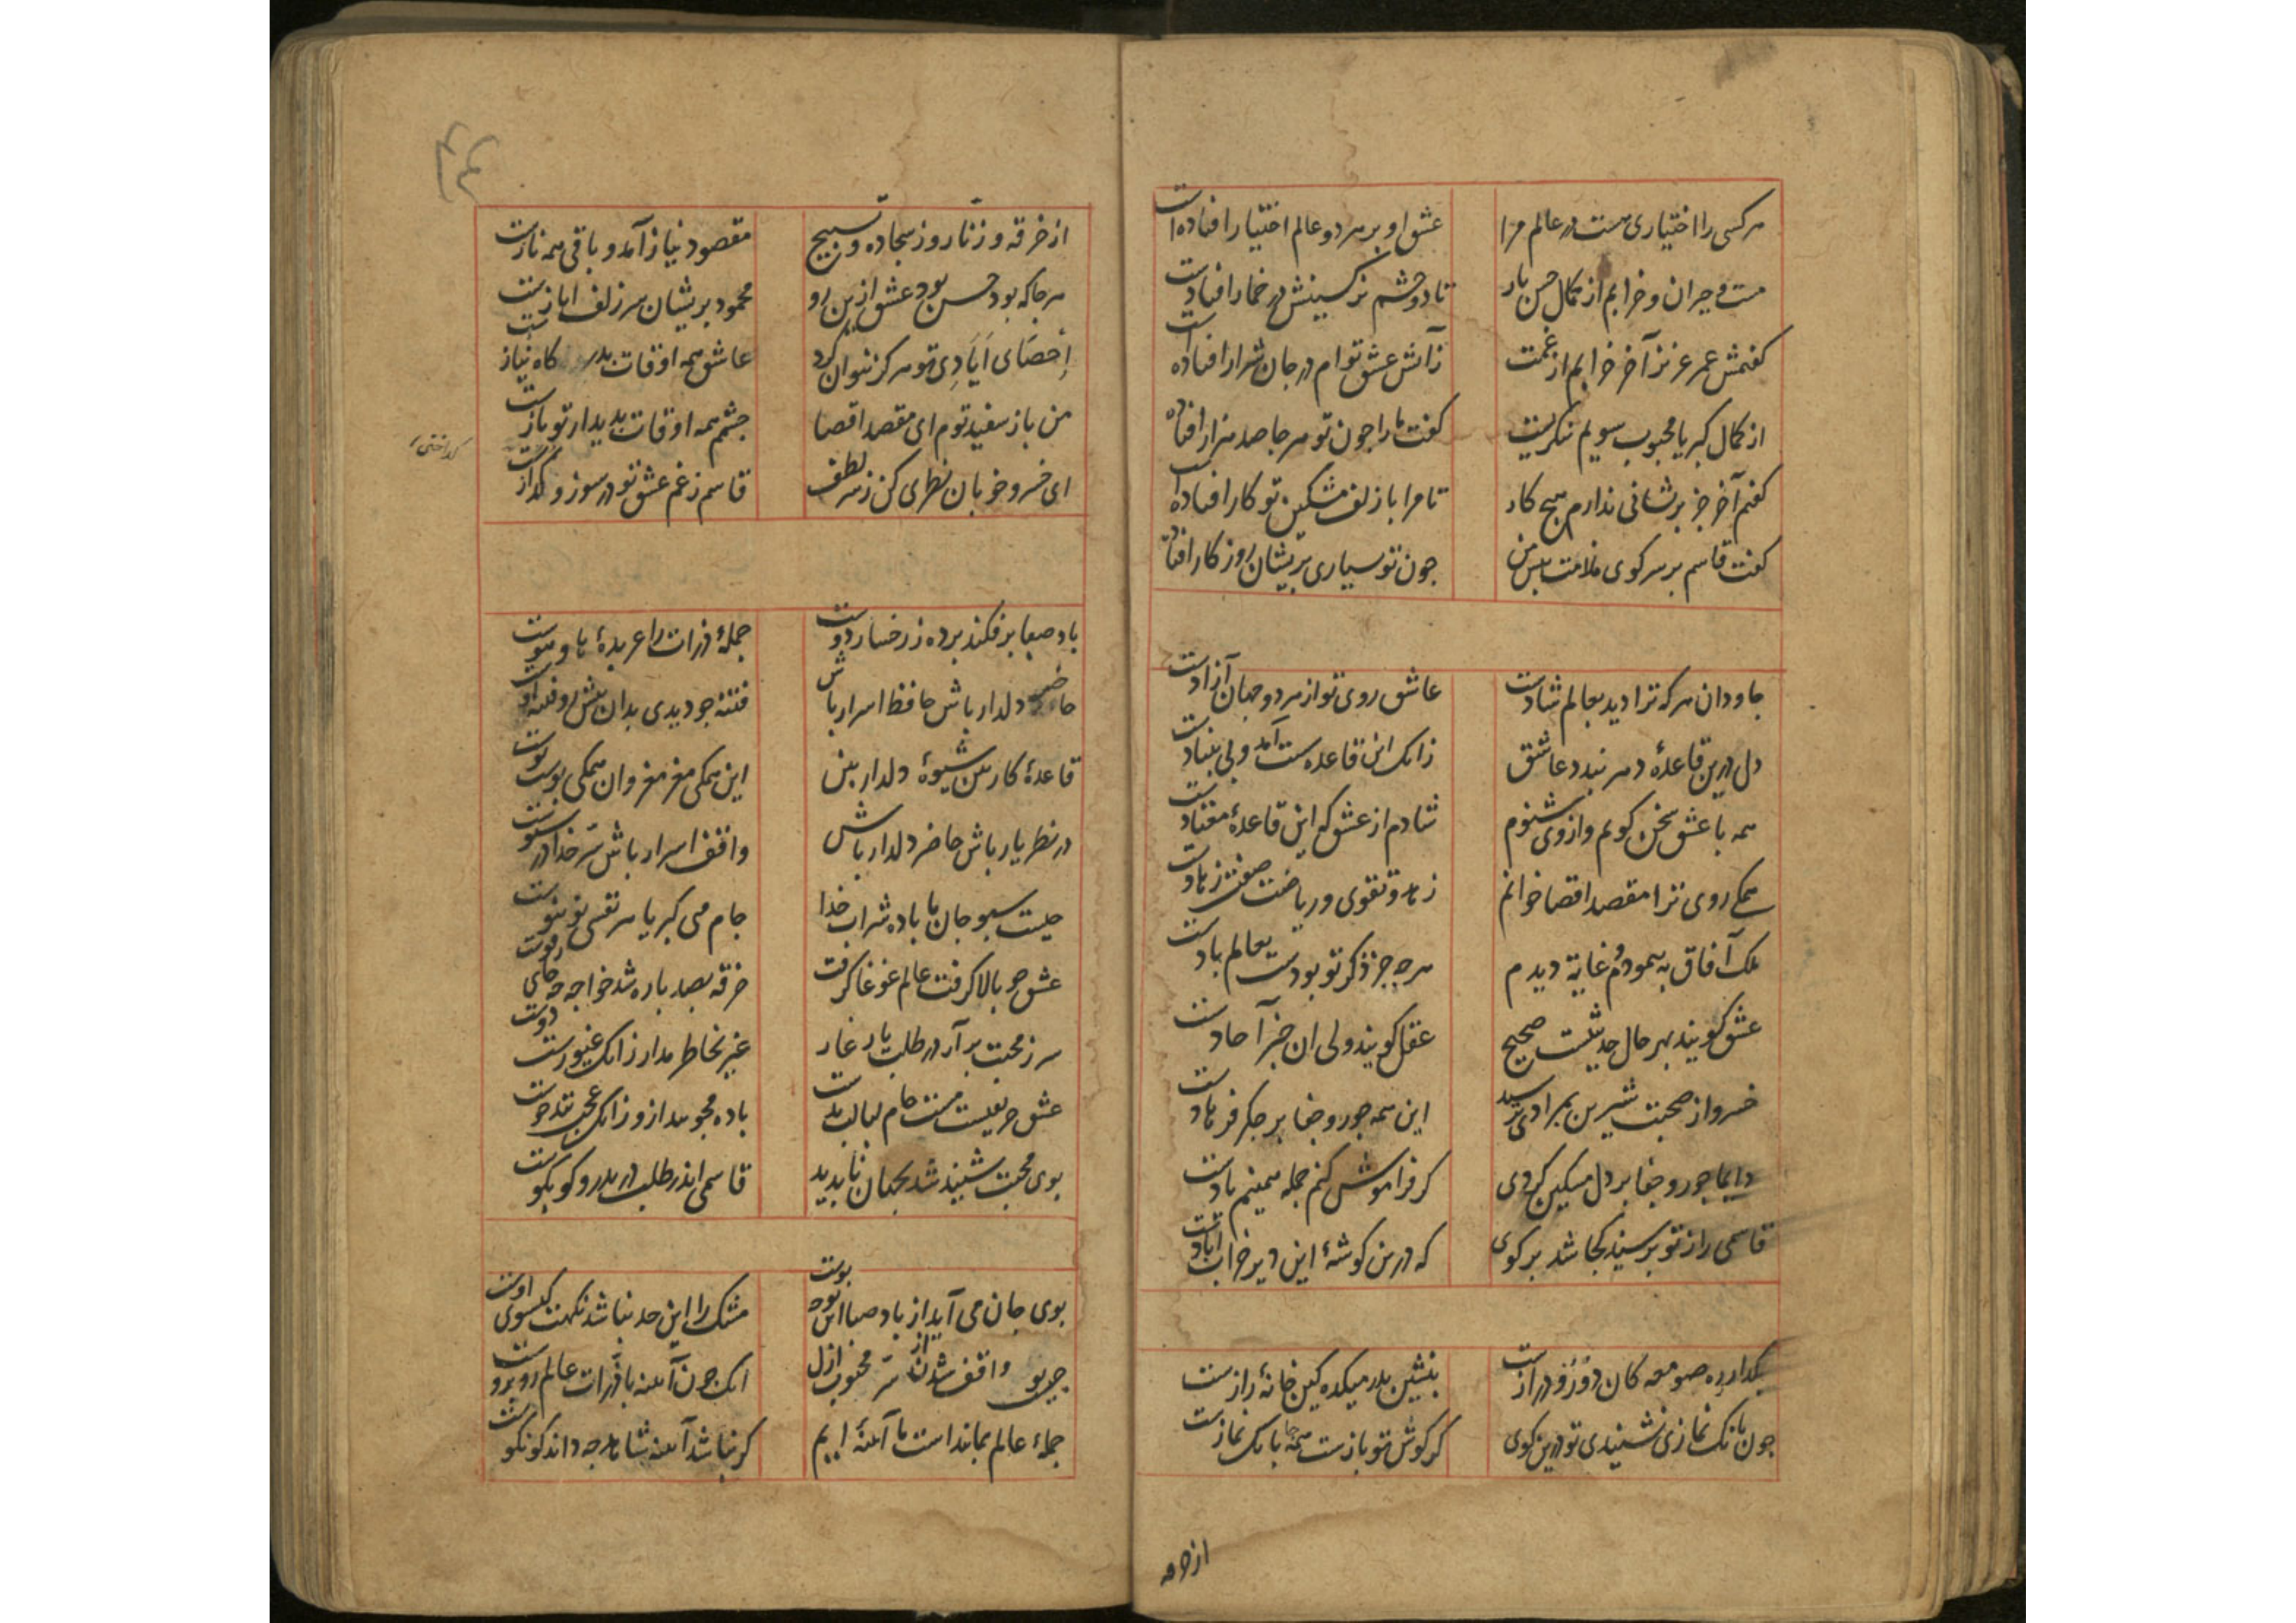 هرکسی را اختیاری هست در عالم مرا عشق او بر هر دو عالم اختیار افتاده است
مست و حیران و خرابم از کمال حسن یار تا دو چشم نرکسینش در خمار افتادست
کفتمش عمر عزیز آخر خرابم از غمت زآتش عشق توام در جان شرار افتاده است
از کمال کبریا محبوب سویم ننکریست کفت ما را جون تو هر جا صد هزار افتاده
کفتم آخر جز پریشانی ندارم هیج کار تا مرا با زلف مشکین تو کار افتاده است
کفت قاسم بر سر کوی ملامت بس جون تو بسیاری پریشان روزکار افتاد
جاودان هرکه ترا دید بعالم شادست عاشق روی تو از هر دو جهان آزادست
دل درین قاعده دهر نبندد عاشق زانک این قاعده سست آمد و بی بنیادست
همه با عشق سخن کویم و از وی شنوم شادم از عشق که این قاعدهٔ معتادست
همکی روی ترا مقصد اقصا خوانم زهد و تقوی و ریاضت صفت زهادست
ملک آفاق بپیمودم و غایة دیدم هرجه جز ذکر تو بودست بعالم بادست
عشق کویند بهر حال حدیثیست صحیح عقل کویند ولی ان خبر آحادست
خسرو از صحبت شیرین بمرادی برسید این همه جور و جفا بر جکر فرهادست
دایما جور و جفا بر دل مسکین کردی کر فراموش کنم جمله همینم یادست
قاسمی را ز تو پرسند کجا شد بر کوی که درین کوشهٔ این دیر خراب ابادست
بکذار ره صومعه کان دور و درازست بنشین بدر میکده کین خانهٔ رازست
جون بانک نمازی نشنیدی تو درین کوی کر کوش تو بازست همه جا بانک نمازست
از خرقه
از خرقه و زنار و ز سجاده و تسبیح مقصود نیاز آمد و باقی همه نازست
هرجا که بود حسن بود عشق ازین رو محمود پریشان سر زلف ایازست
إحصای أیادی تو هرکز نتوان کرد عاشق همه اوقات بدر کاه نیاز ست
من باز سفید توم ای مقصد اقصا جشمم همه اوقات بدیدار تو بازست
ای خسرو خوبان نظری کن ز سر لطف قاسم ز غم عشق تو در سوز و کدازست
باد صبا برفکند برده ز رخسار دوست جملهٔ ذرات را عربدهٔ های و هوست
حاضر دلدار باش حافظ اسرار باش فتنه جو دیدی بدان
قاعدهٔ کار بین شیوهٔ دلدار بین این همکی مغز مغز وان همکی پوست پوست
در نظر یار باش حاضر دلدار باش واقف اسرار باش سر خدا
جیست سبو جان ما باده شراب خدا جام می کبریا هر نفسی نو بنوست
عشق جو بالا کرفت عالم غوغا کرفت خرقه بصد باره شد خواجه جه جای رفوست
سر ز محبت برآر در طلب یار غار غیر بخاطر مدار زانک غیورست دوست
عشق حریفیست مست جام لبالب بدست باده زانک عجب تندخوست
بوی محبت شنید شد بجهان نابدید قاسمی اندر طلب در بدر و کو بکوست
بوی جان می آید از باد صبا این بوی مشک را این حد نباشد نکهت کیسوی اوست
واقف شدن از سر محبوب ازل انک جون آینه با ذرات عالم روبروست
جملهٔ عالم آینهٔ ایم کر نباشد آینه